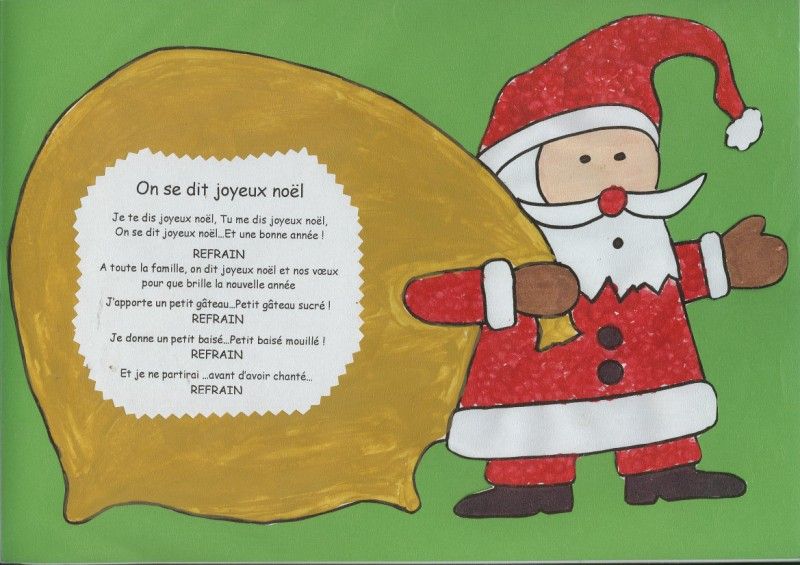 On se dit joyeux noël
Je te dis joyeux noël, Tu me dis joyeux noël,
On se dit joyeux noël...Et une bonne année !
REFRAIN
A toute la famille, on dit joyeux noël et nos vœux
pour que brille la nouvelle année
J'apporte un petit gâteau...Petit gâteau sucré !
REFRAIN
Je donne un petit baisé...Petit baisé mouillé !
REFRAIN
Et je ne partirai ...avant d'avoir chanté...
REFRAIN